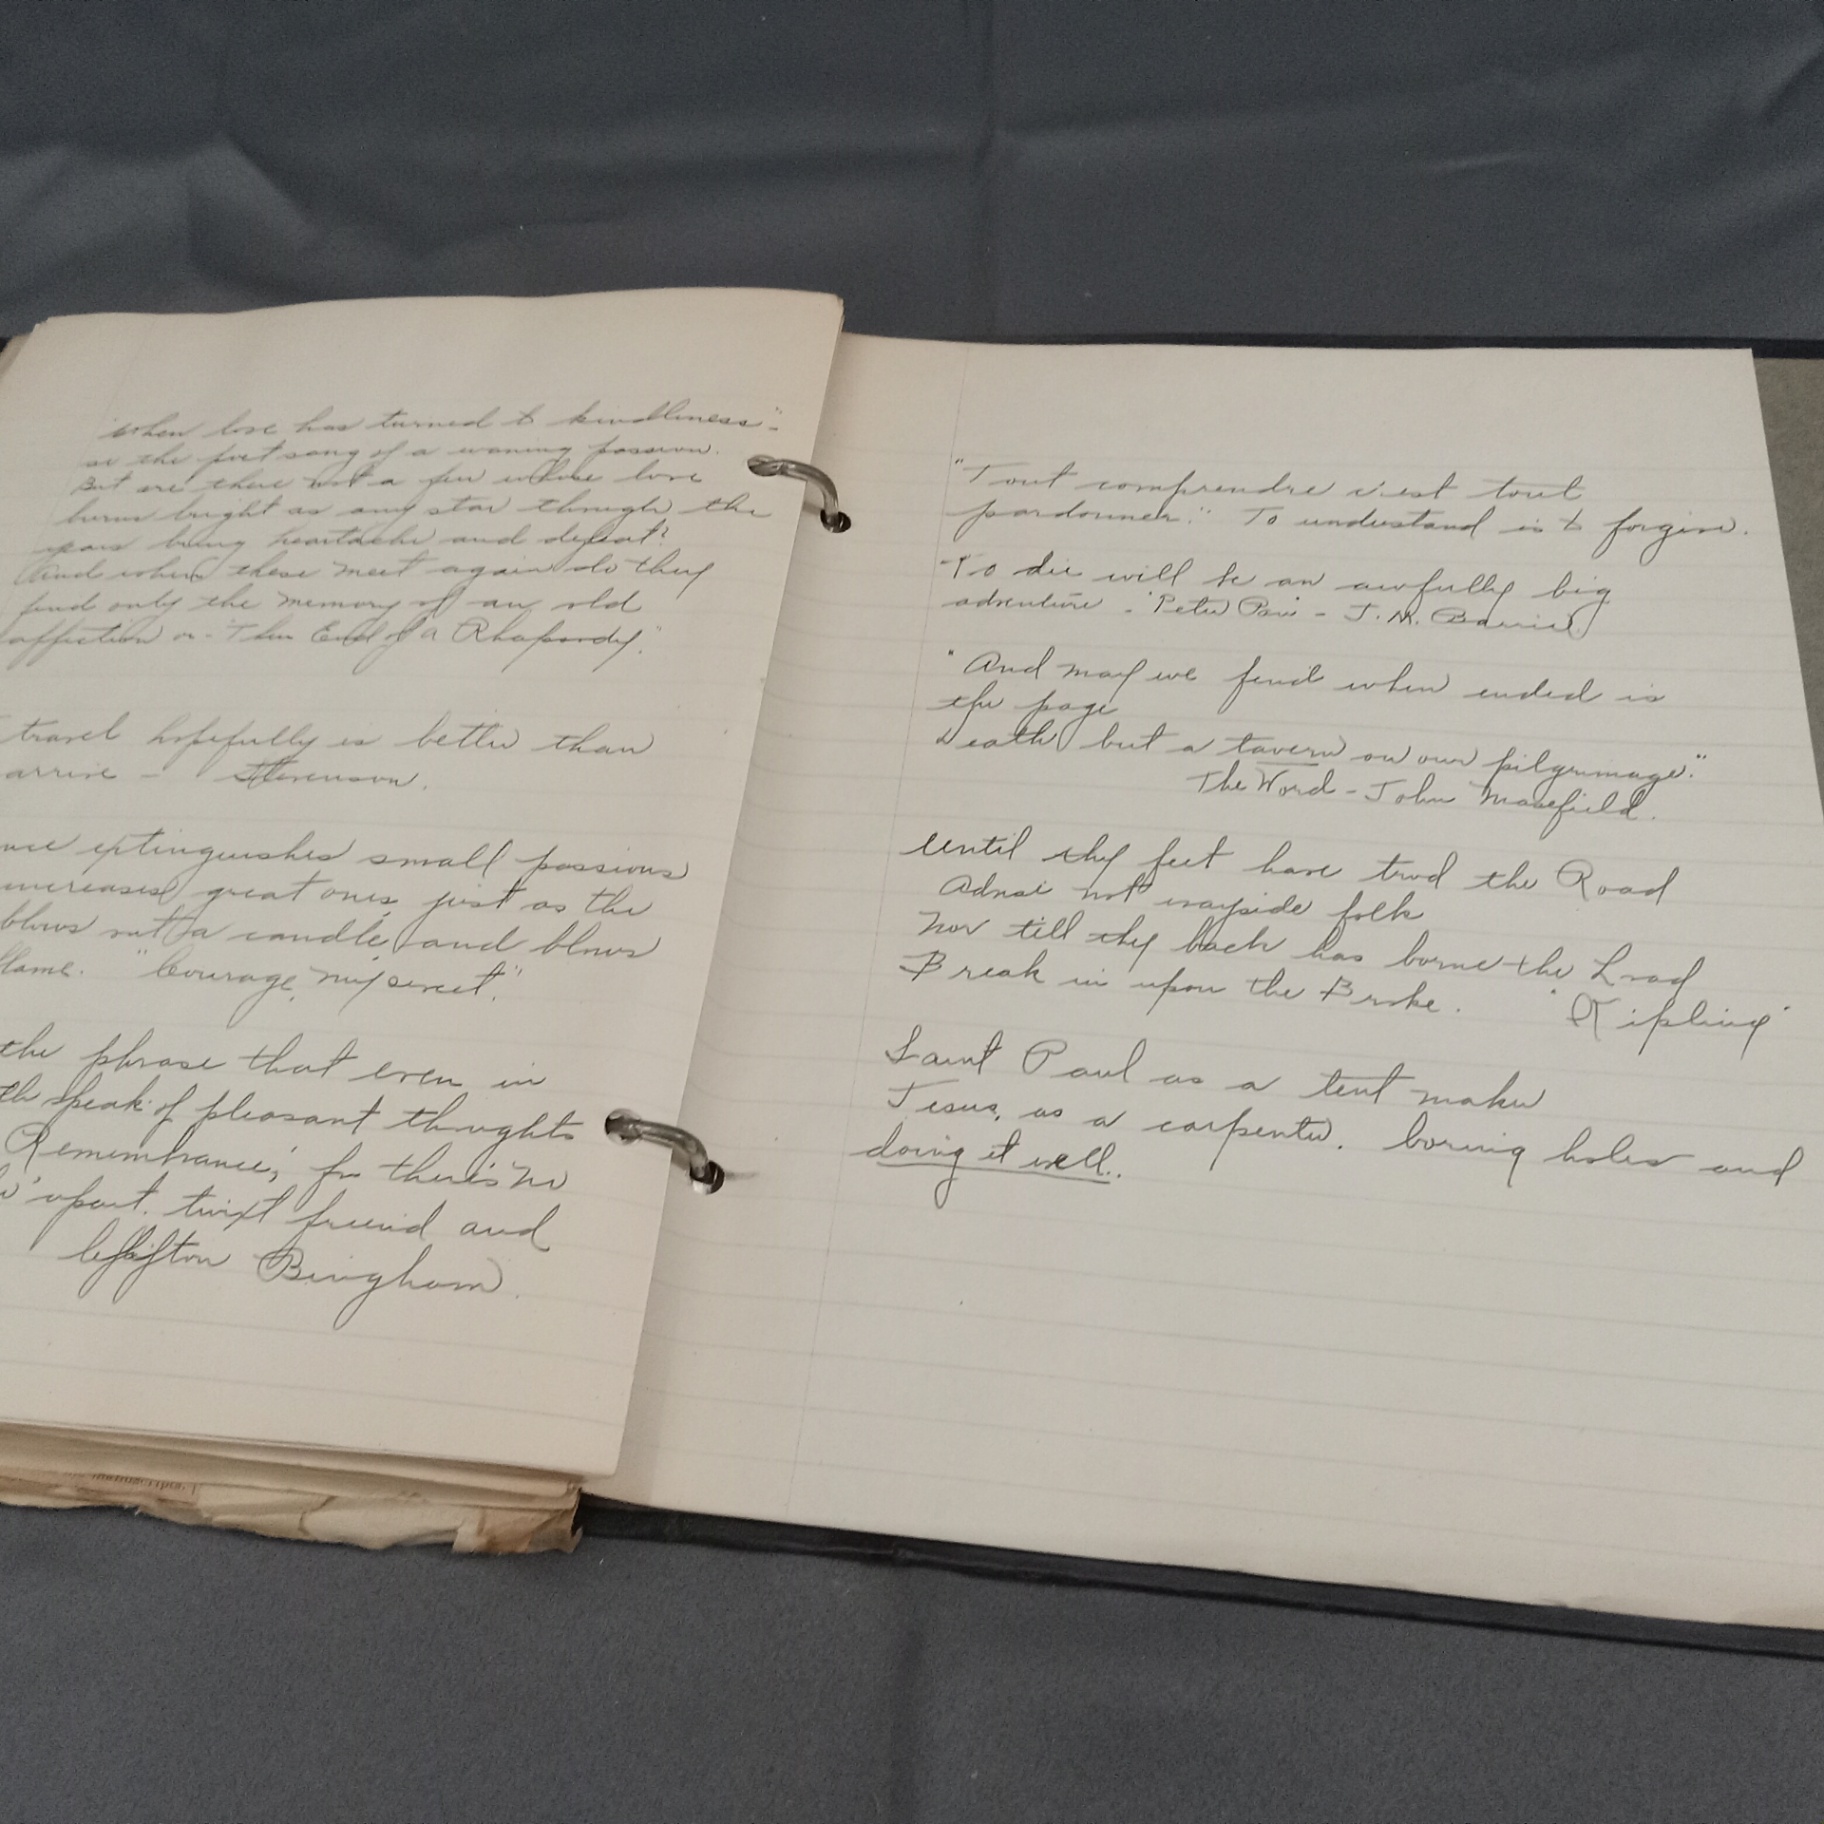 "When love has turned to kindliness" -
so the poet sang of a waning passion.
But are there not a few whose love
burns bright as any star through the
years bring heartache and defeat?
And when these meet again do they
find only the memory of an old
affection or - "The End of a Rhapsody."
travel hopefully is better than
arrive - Stevenson.
extinguishes small passions
increases great ones, just as the
blows out a candle, and blows
flame. "Courage, my sweet."
the phrase that even in
speak of pleasant thoughts
Remembrance; for there's no
apart. twixt friend and
Bingham.
"Tout comprendre c'est tout
pardonner." To understand is to forgive.
To die will be an awfully big
adventure - "Peter Pan" - J. M. Barrie
"And may we find when ended is
the page
Death but a tavern on our pilgrimage."
The Word - John Masefield.
Until thy feet have trod the Road
Advise not wayside folk
Nor till thy back has borne the Load
Break in upon the Broke. "Kipling"
Saint Paul as a tent maker
Jesus, as a carpenter. boring holes and
doing it well.
manuscripts.